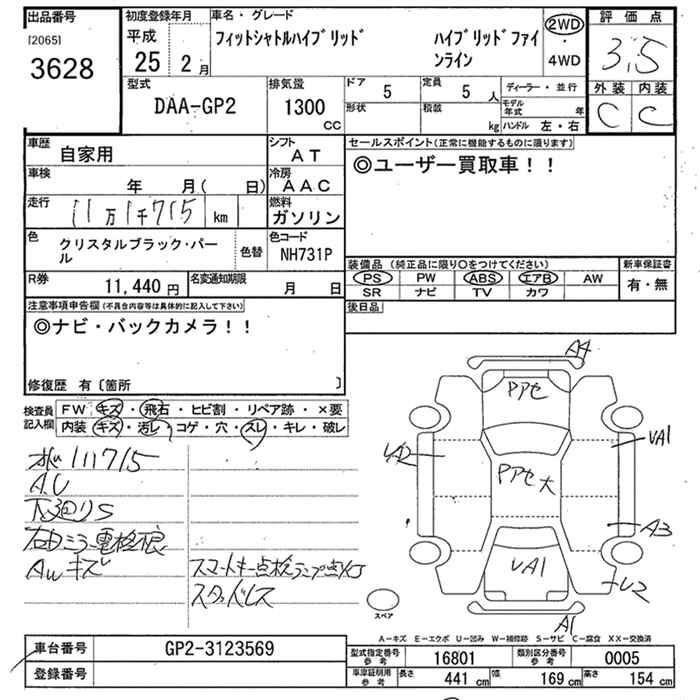 出品番号
[2065]
3628
初度登録年月
平成
25 2月
車名・グレード
フィットシャトルハイブリッド ハイブリッドファインライン
2WD
・
4WD
評価点
3.5
外装 内装
C C
型式
DAA-GP2
排気量
1300
CC
ドア 5
定員 5人
形状
積載 kg
ディーラー・並行
モデル年式 年
ハンドル 左・右
車歴
自家用
シフト
AT
車検
年 月( 日)
冷房
AAC
走行
11万1千715 km
燃料
ガソリン
色
クリスタルブラック・パール
色替
色コード
NH731P
R券
11,440円
名変通知期限
月 日
セールスポイント(正常に機能するものに限ります)
◎ユーザー買取車!!
装備品(純正品に限り○をつけてください)
PS PW ABS エアB AW
SR ナビ TV カワ
新車保証書
有・無
後日品
注意事項申告欄(不具合内容等は具体的に記入して下さい)
◎ナビ・バックカメラ!!
修復歴 有〔箇所 〕
検査員記入欄
FW キズ・飛石・ヒビ割・リペア跡・×要
内装 キズ・汚レ・コゲ・穴・スレ・キレ・破レ
111715
AU
下廻りS
右Dミラー電格
AWキズ
スマートキー点検ランプ点灯
スタッドレス
A4
アセ
UA2
UA1
アセ大
A3
UA1
U2
A1
スペア
A-キズ E-エクボ U-凹み W-補修跡 S-サビ C-腐食 XX-交換済
車台番号
GP2-3123569
登録番号
型式指定番号 参考
16801
類別区分番号 参考
0005
車庫証明用 参考
長さ 441cm
幅 169cm
高さ 154cm